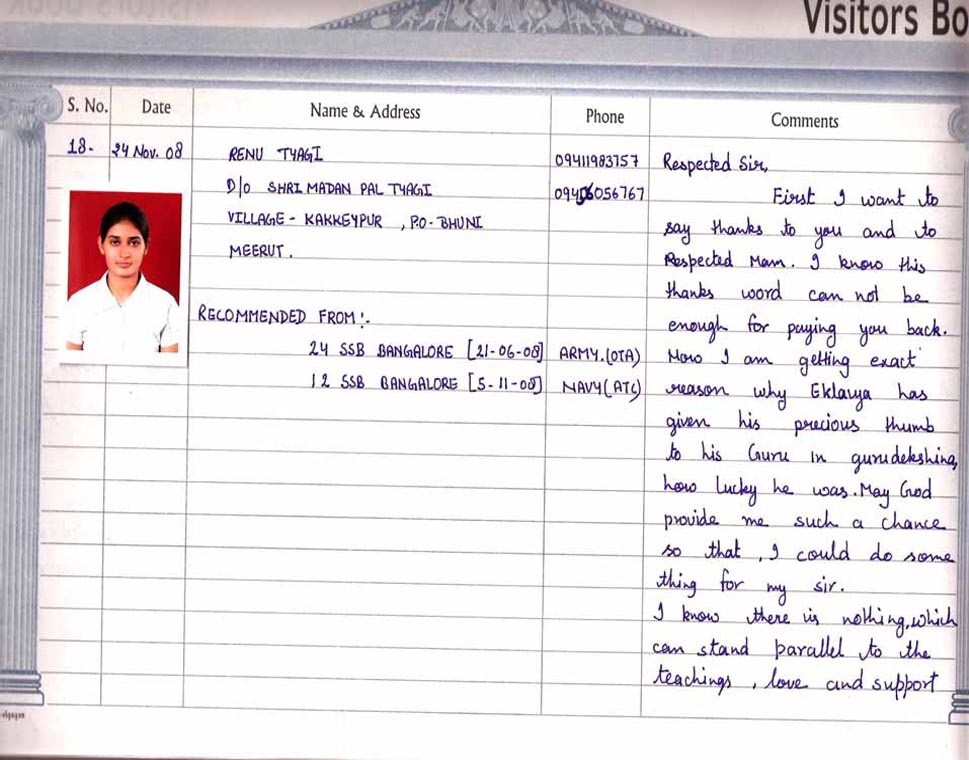 Visitors Bo
S. No. Date Name & Address Phone Comments
18- 24 Nov. 08 RENU TYAGI 09411983757 Respected Sir,
D/o SHRI MADAN PAL TYAGI 09406056767 First I want to
VILLAGE - KAKKEYPUR , P.O- BHUNI say thanks to you and to
MEERUT. Respected Mam. I know this
thanks word can not be
RECOMMENDED FROM:- enough for paying you back.
24 SSB BANGALORE [21-06-08] ARMY.(OTA) Now I am getting exact
12 SSB BANGALORE [5-11-08] NAVY(ATC) reason why Eklavya has
given his precious thumb
to his Guru in gurudekshina,
how lucky he was. May God
provide me such a chance
so that , I could do some
thing for my sir.
I know there is nothing, which
can stand parallel to the
teachings , love and support